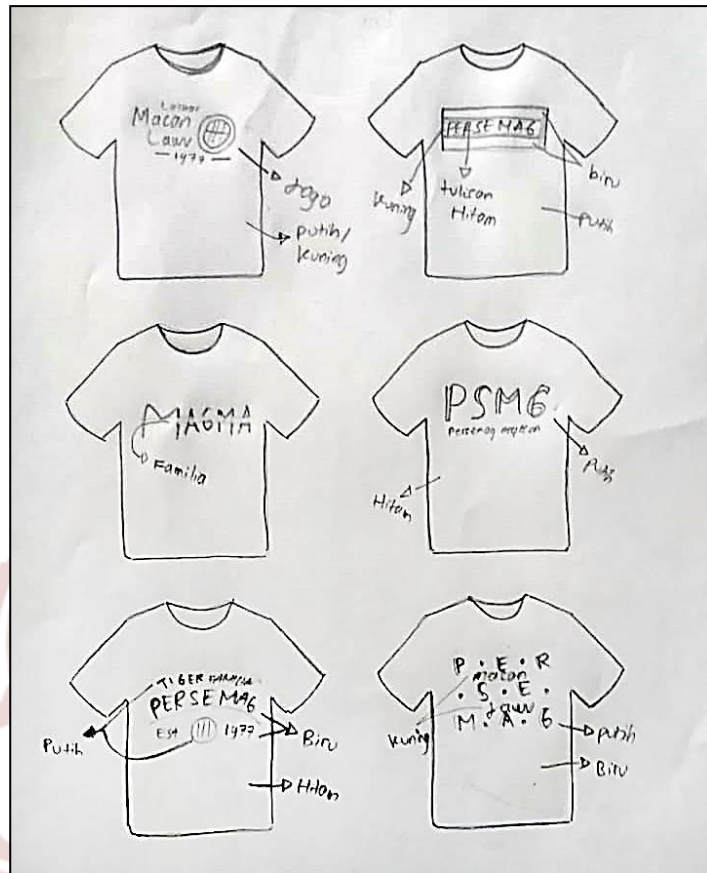 Macan
Lawu
1977
logo
putih/
kuning
PERSEMAG
kuning
tulisan
Hitam
biru
putih
MAGMA
Familia
PSMG
Hitam
TIGER
PERSEMAG
Est 1977
Putih
Biru
Hitam
P.E.R
macan
.S.E.
Lawu
M.A.G
kuning
putih
Biru